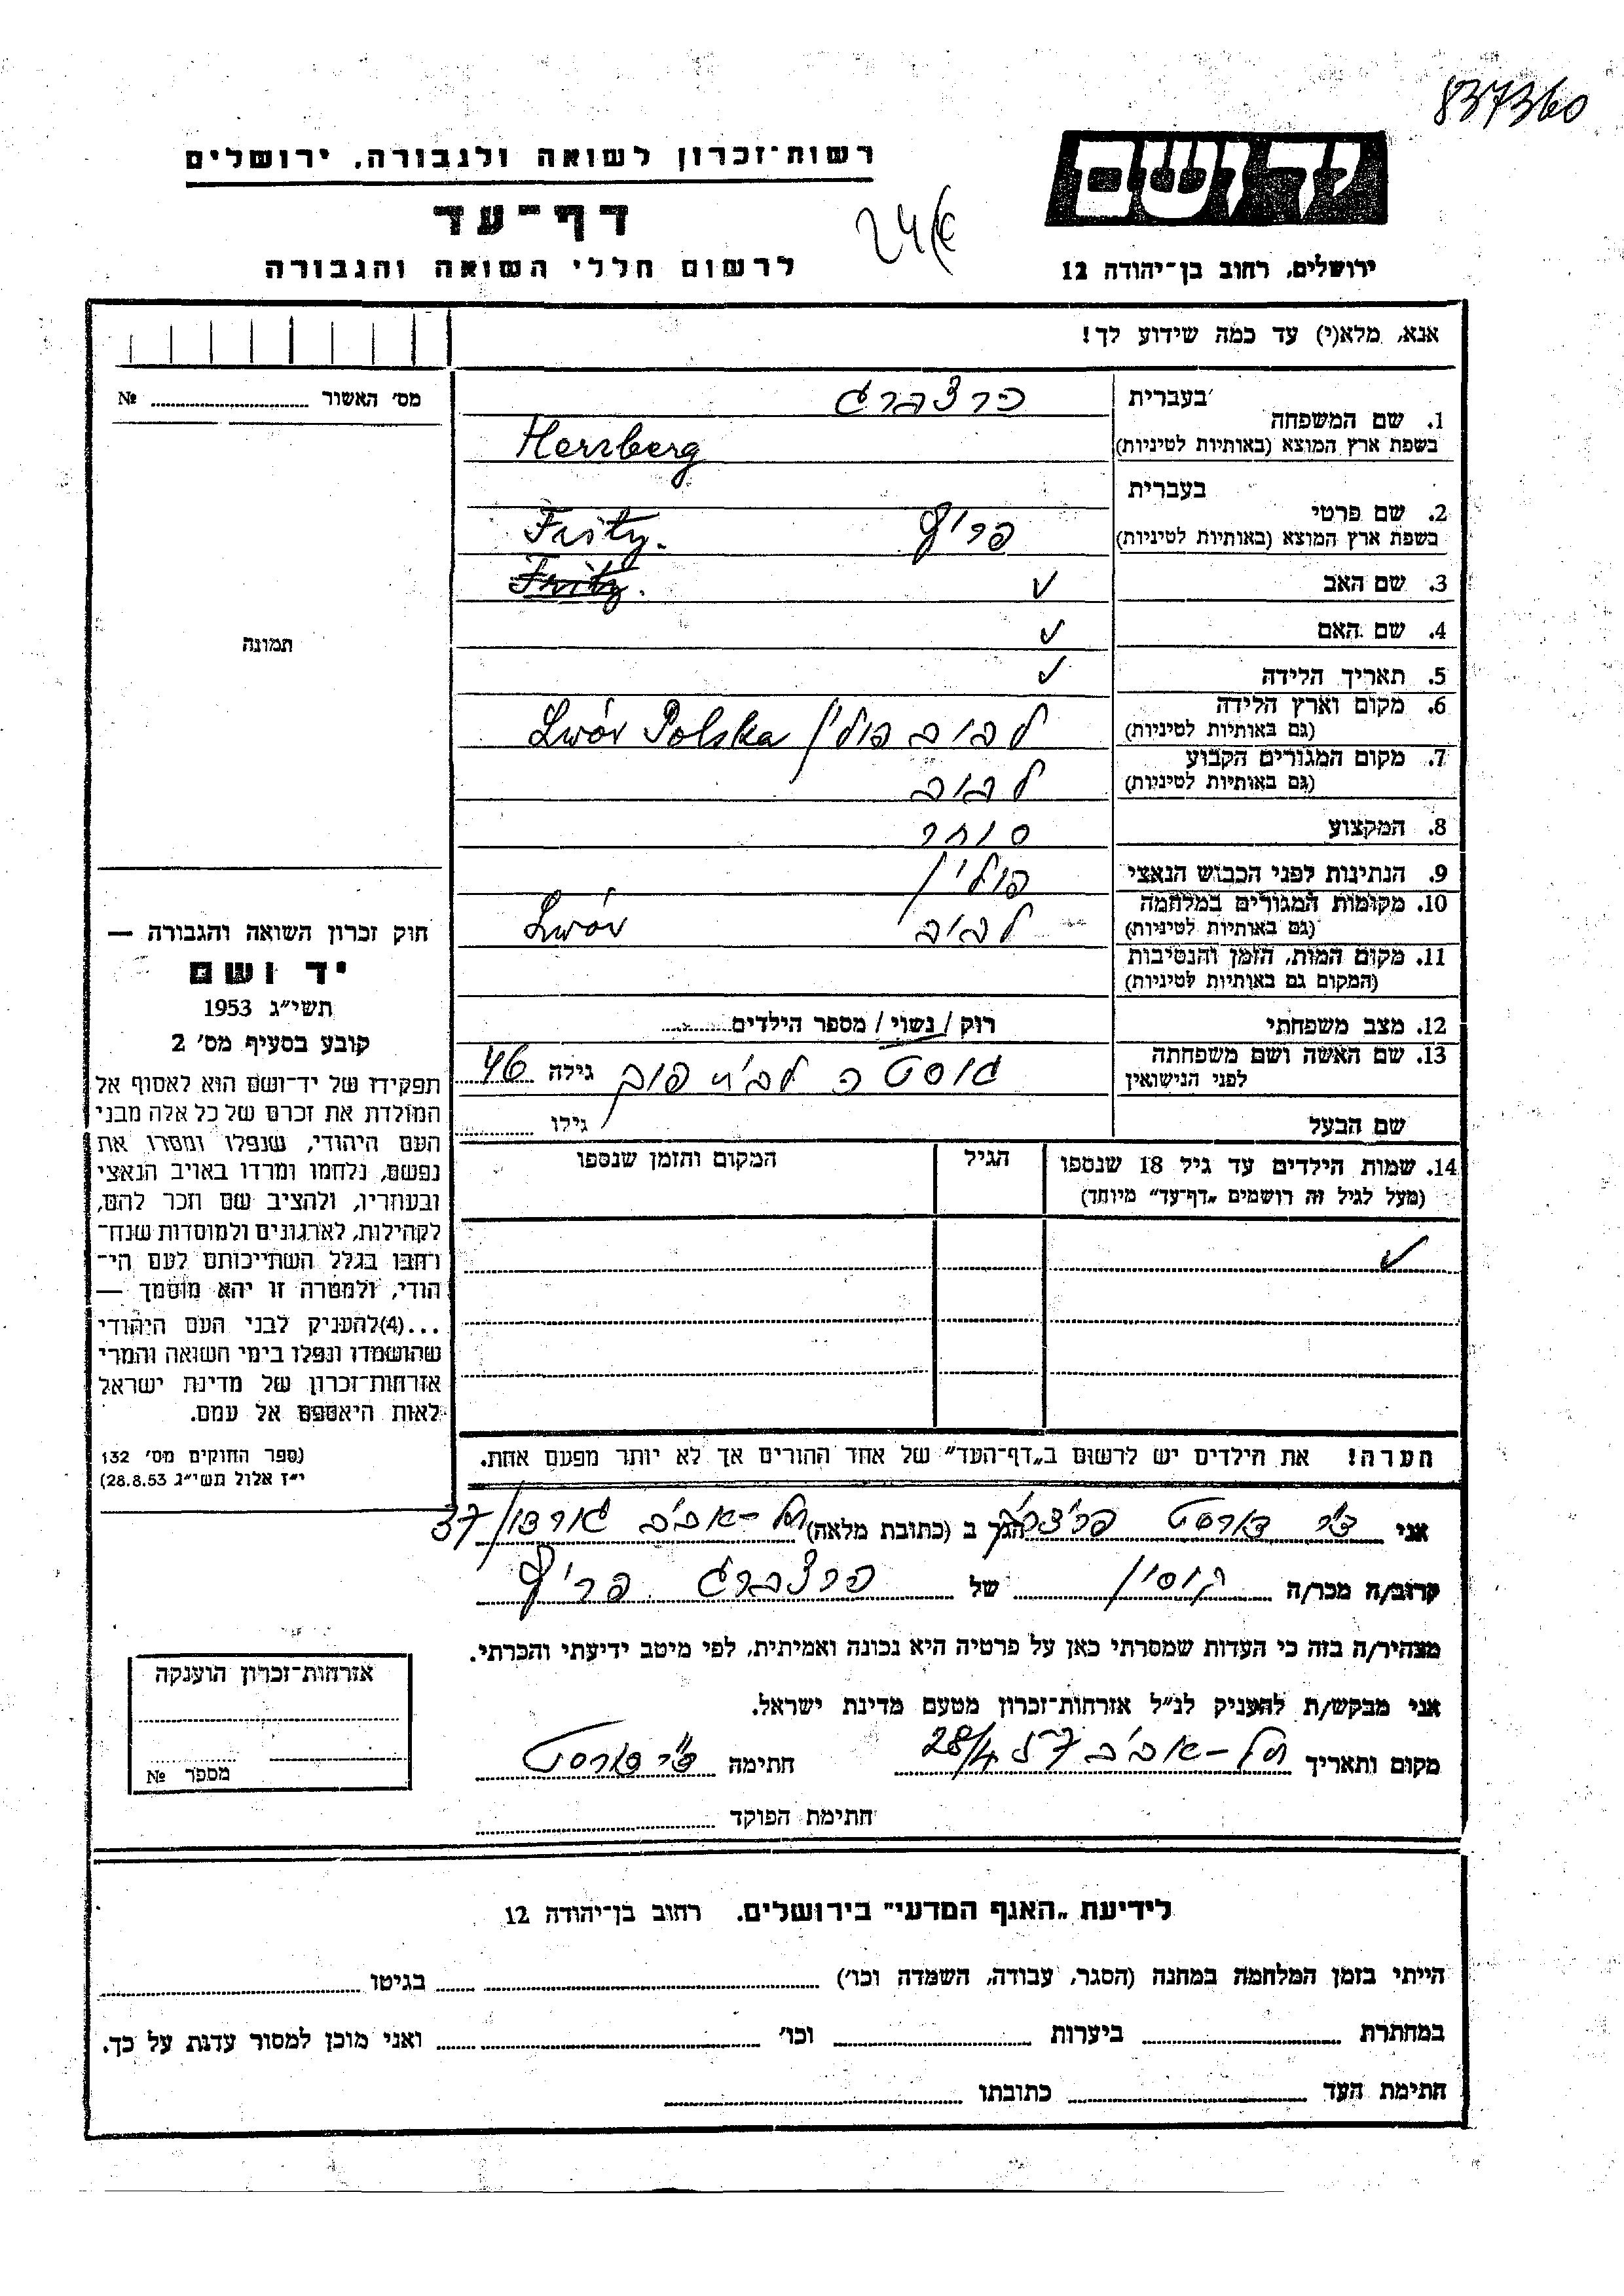 837360
רשות־זכרון לשואה ולגבורה, ירושלים
יד ושם
דף־עד
לרשום חללי השואה והגבורה
ירושלים, רחוב בן־יהודה 12
אנא, מלא(י) עד כמה שידוע לך!
מס׳ האשור № ........
בעברית הרצברג
1. שם המשפחה
בשפת ארץ המוצא (באותיות לטיניות) Herzberg
בעברית
2. שם פרטי
בשפת ארץ המוצא (באותיות לטיניות) פריץ Fritz.
3. שם האב Fritz.
4. שם האם
תמונה
5. תאריך הלידה
6. מקום וארץ הלידה
(גם באותיות לטיניות) לבוב פולין Lwów Polska
7. מקום המגורים הקבוע
(גם באותיות לטיניות) לבוב
8. המקצוע סוחר
9. הנתינות לפני הכבוש הנאצי פולין
10. מקומות המגורים במלחמה
(גם באותיות לטיניות) לבוב Lwów
11. מקום המות, הזמן והנסיבות
(המקום גם באותיות לטיניות)
12. מצב משפחתי רוק / נשוי / מספר הילדים........
13. שם האשה ושם משפחתה
לפני הנישואין גוסטה גילה 46
שם הבעל גילו ........
14. שמות הילדים עד גיל 18 שנספו
(מעל לגיל זה רושמים „דף־עד” מיוחד)
הגיל
המקום והזמן שנספו
חוק זכרון השואה והגבורה —
יד ושם
תשי״ג 1953
קובע בסעיף מס׳ 2
תפקידו של יד־ושם הוא לאסוף אל
המולדת את זכרם של כל אלה מבני
העם היהודי, שנפלו ומסרו את
נפשם, נלחמו ומרדו באויב הנאצי
ובעוזריו, ולהציב שם וזכר להם,
לקהילות, לארגונים ולמוסדות שנח־
רבו בגלל השתייכותם לעם הי־
הודי, ולמטרה זו יהא מוסמך —
...(4)להעניק לבני העם היהודי
שהושמדו ונפלו בימי השואה והמרי
אזרחות־זכרון של מדינת ישראל
לאות היאספם אל עמם.
(ספר החוקים מס׳ 132
י״ז אלול תשי״ג 28.8.53)
הערה! את הילדים יש לרשום ב„דף־העד” של אחד ההורים אך לא יותר מפעם אחת.
אני ד״ר הורסט הגר ב (כתובת מלאה) תל-אביב גורדון 37
קרוב/ה מכר/ה קוסין של הרצברג פריץ
מצהיר/ה בזה כי העדות שמסרתי כאן על פרטיה היא נכונה ואמיתית, לפי מיטב ידיעתי והכרתי.
אני מבקש/ת להעניק לנ״ל אזרחות־זכרון מטעם מדינת ישראל.
מקום ותאריך תל-אביב 28/4 57 חתימה ד״ר הורסט
חתימת הפוקד
אזרחות־זכרון הוענקה
מספר №
לידיעת „האגף המדעי” בירושלים. רחוב בן־יהודה 12
הייתי בזמן המלחמה במחנה (הסגר, עבודה, השמדה וכו׳) ........ בגיטו ........
במחתרת ........ ביערות ........ וכו׳ ........ ואני מוכן למסור עדות על כך.
חתימת העד ........ כתובתו ........